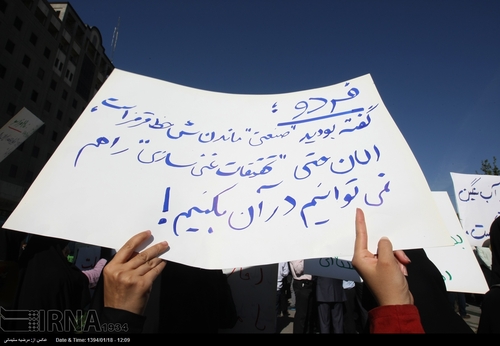 فردو :
گفته بودید "صنعتی" ماندنش خط قرمز است،
الان حتی "تحقیقات غنی سازی" را هم
نمی توانیم در آن بکنیم!
IRNA 1934
عکس از: مرضیه سلیمانی
Date & Time: 1394/01/18 - 12:09